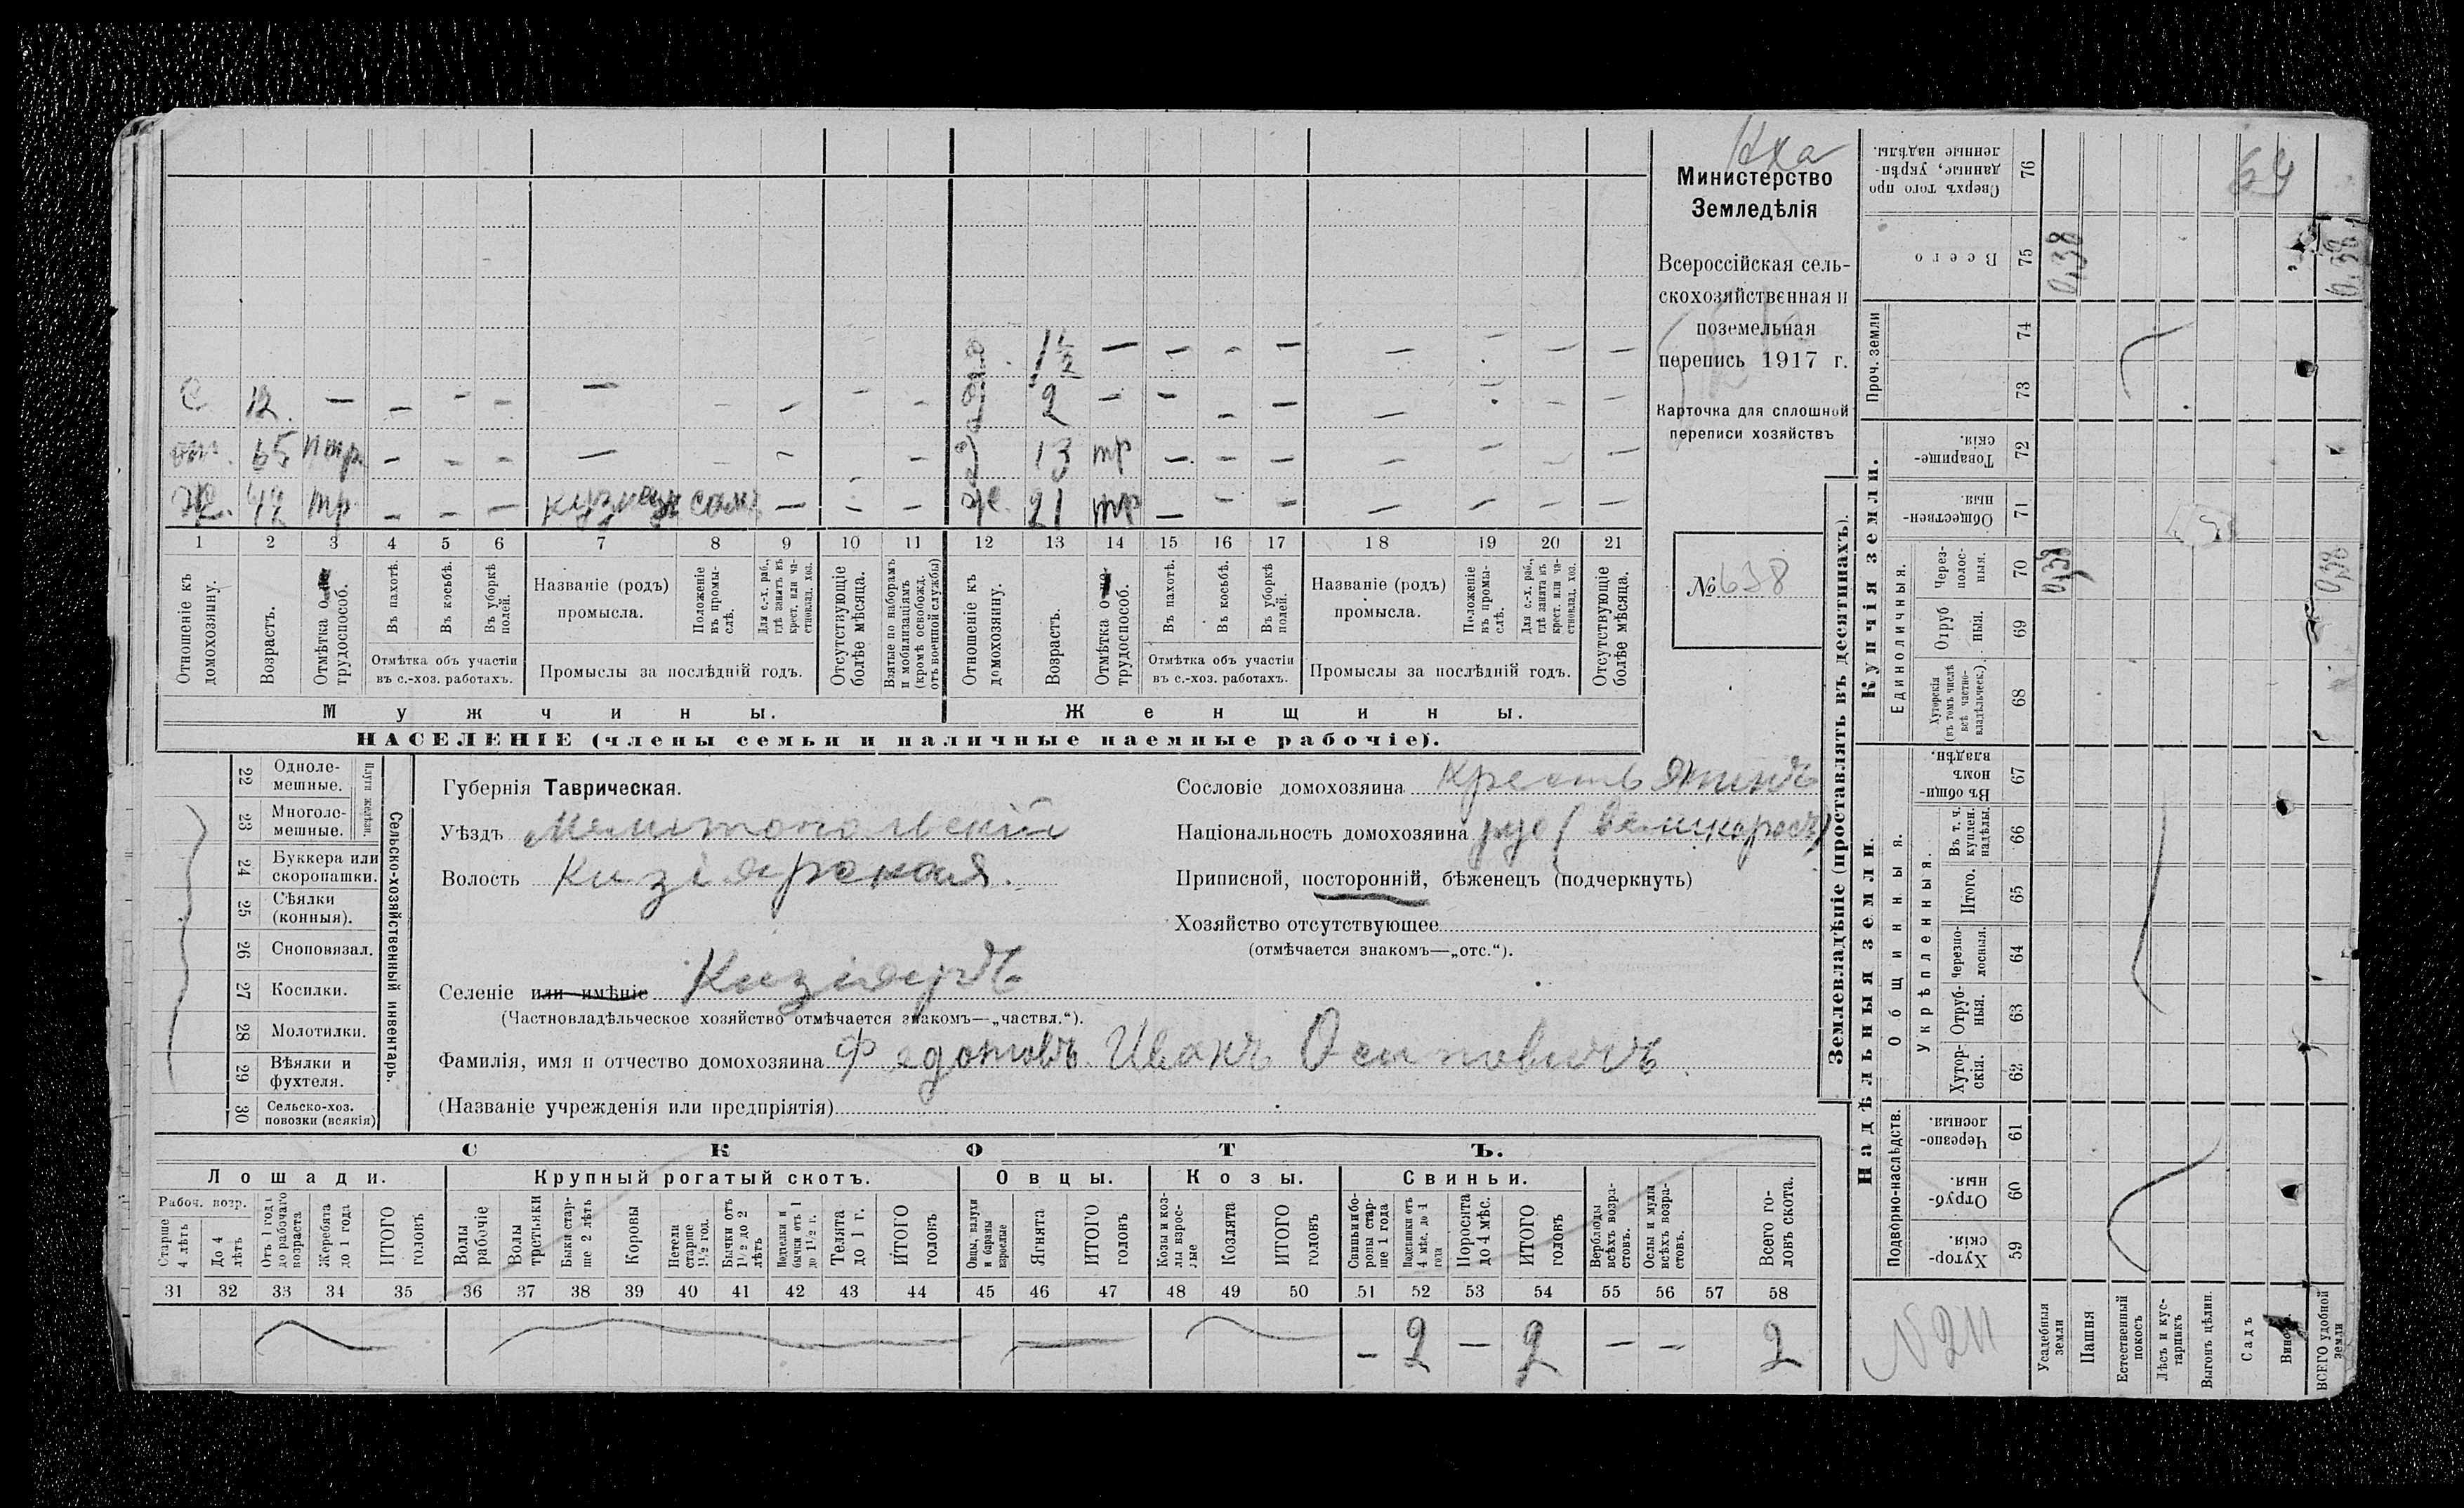 Кха
Министерство
Земледѣлія
Всероссійская сель-
скохозяйственная и
поземельная
перепись 1917 г.
Карточка для сплошной
переписи хозяйствъ
№ 638
д. 1½ — — — — — — — —
С 12. — — — — — — — — — д 2 — — — — — — — —
от. 65 птр. — — — — — — — д 13 тр — — — — — — —
Х. 42 тр — — — кузнец сам — — — ж. 21 тр — — — — — — —
1 2 3 4 5 6 7 8 9 10 11 12 13 14 15 16 17 18 19 20 21
Отношеніе къ домохозяину.
Возрастъ.
Отмѣтка о трудоспособ.
Въ пахотѣ.
Въ косьбѣ.
Въ уборкѣ полей.
Отмѣтка объ участіи
въ с.-хоз. работахъ.
Названіе (родъ)
промысла.
Положеніе въ промы-слѣ.
Для с.-х. раб., гдѣ занятъ въ крест. или ча-стновлад. хоз.
Промыслы за послѣдній годъ.
Отсутствующіе болѣе мѣсяца.
Взятые по наборамъ и мобилизаціямъ (кромѣ освобожд. отъ военной службы)
Отношеніе къ домохозяину.
Возрастъ.
Отмѣтка о трудоспособ.
Въ пахотѣ.
Въ косьбѣ.
Въ уборкѣ полей.
Отмѣтка объ участіи
въ с.-хоз. работахъ.
Названіе (родъ)
промысла.
Положеніе въ промы-слѣ.
Для с.-х. раб., гдѣ занята въ крест. или ча-стновлад. хоз.
Промыслы за послѣдній годъ.
Отсутствующіе болѣе мѣсяца.
Мужчины. Женщины.
НАСЕЛЕНІЕ (члены семьи и наличные наемные рабочіе).
Сельско-хозяйственный инвентарь.
Плуги желѣзн.
22 Одноле-мешные.
23 Многоле-мешные.
24 Буккера или скоропашки.
25 Сѣялки (конныя).
26 Сноповязал.
27 Косилки.
28 Молотилки.
29 Вѣялки и фухтеля.
30 Сельско-хоз. повозки (всякія)
Губернія Таврическая.
Уѣздъ Мелитопольскій
Волость Кизіярская.
Селеніе или имѣніе Кизіяръ
(Частновладѣльческое хозяйство отмѣчается знакомъ—„частвл.“).
Фамилія, имя и отчество домохозяина Федотовъ Иванъ Осиповичъ.
(Названіе учрежденія или предпріятія)
Сословіе домохозяина Крестьянинъ
Національность домохозяина рус (великоросъ)
Приписной, посторонній, бѣженецъ (подчеркнуть)
Хозяйство отсутствующее
(отмѣчается знакомъ—„отс.“).
СКОТЪ.
Лошади. Крупный рогатый скотъ. Овцы. Козы. Свиньи.
Рабоч. возр.
Старше 4 лѣтъ
До 4 лѣтъ
Отъ 1 года до рабочаго возраста
Жеребята до 1 года
ИТОГО головъ
Волы рабочіе
Волы третьяки
Быки стар-ше 2 лѣтъ
Коровы
Нетели старше 1½ год.
Бычки отъ 1½ до 2 лѣтъ
Подтелки и бычки отъ 1 до 1½ г.
Телята до 1 г.
ИТОГО головъ
Овцы, валухи и бараны взрослые
Ягнята
ИТОГО головъ
Козы и коз-лы взрос-лые
Козлята
ИТОГО головъ
Свиньи и бо-ровы стар-ше 1 года
Подсвинки отъ 4 мѣс. до 1 года
Поросята до 4 мѣс.
ИТОГО головъ
Верблюды всѣхъ возра-стовъ.
Ослы и мулы всѣхъ возра-стовъ.
Всего го-ловъ скота.
31 32 33 34 35 36 37 38 39 40 41 42 43 44 45 46 47 48 49 50 51 52 53 54 55 56 57 58
— 2 — 2 — — 2
Землевладѣніе (проставлять въ десятинахъ).
Надѣльныя земли. Купчія земли.
Проч. земли
Подворно-наслѣдств.
Общинныя.
Укрѣпленныя.
Единоличныя.
Хутор-скія. 59
Отруб-ныя. 60
Черезпо-лосныя. 61
Хутор-скія. 62
Отруб-ныя. 63
Черезпо-лосныя. 64
Итого. 65
Въ т. ч. куплен. надѣлы. 66
Въ общи-номъ владѣн. 67
Хуторскія (въ томъ числѣ всѣ частно-владѣльческ.) 68
Отруб ныя. 69
Через-полос-ныя. 70
Обществен-ныя. 71
Товарище-скія. 72
73
74
Всего 75
Сверхъ того про данные, укрѣп-ленные надѣлы. 76
64
0,38
0,38
0,38
0,38
N 211
Усадебныя земли
Пашня
Естественный покосъ
Лѣсъ и кус-тарникъ
Выгонъ цѣлин.
Садъ
ВСЕГО удобной земли